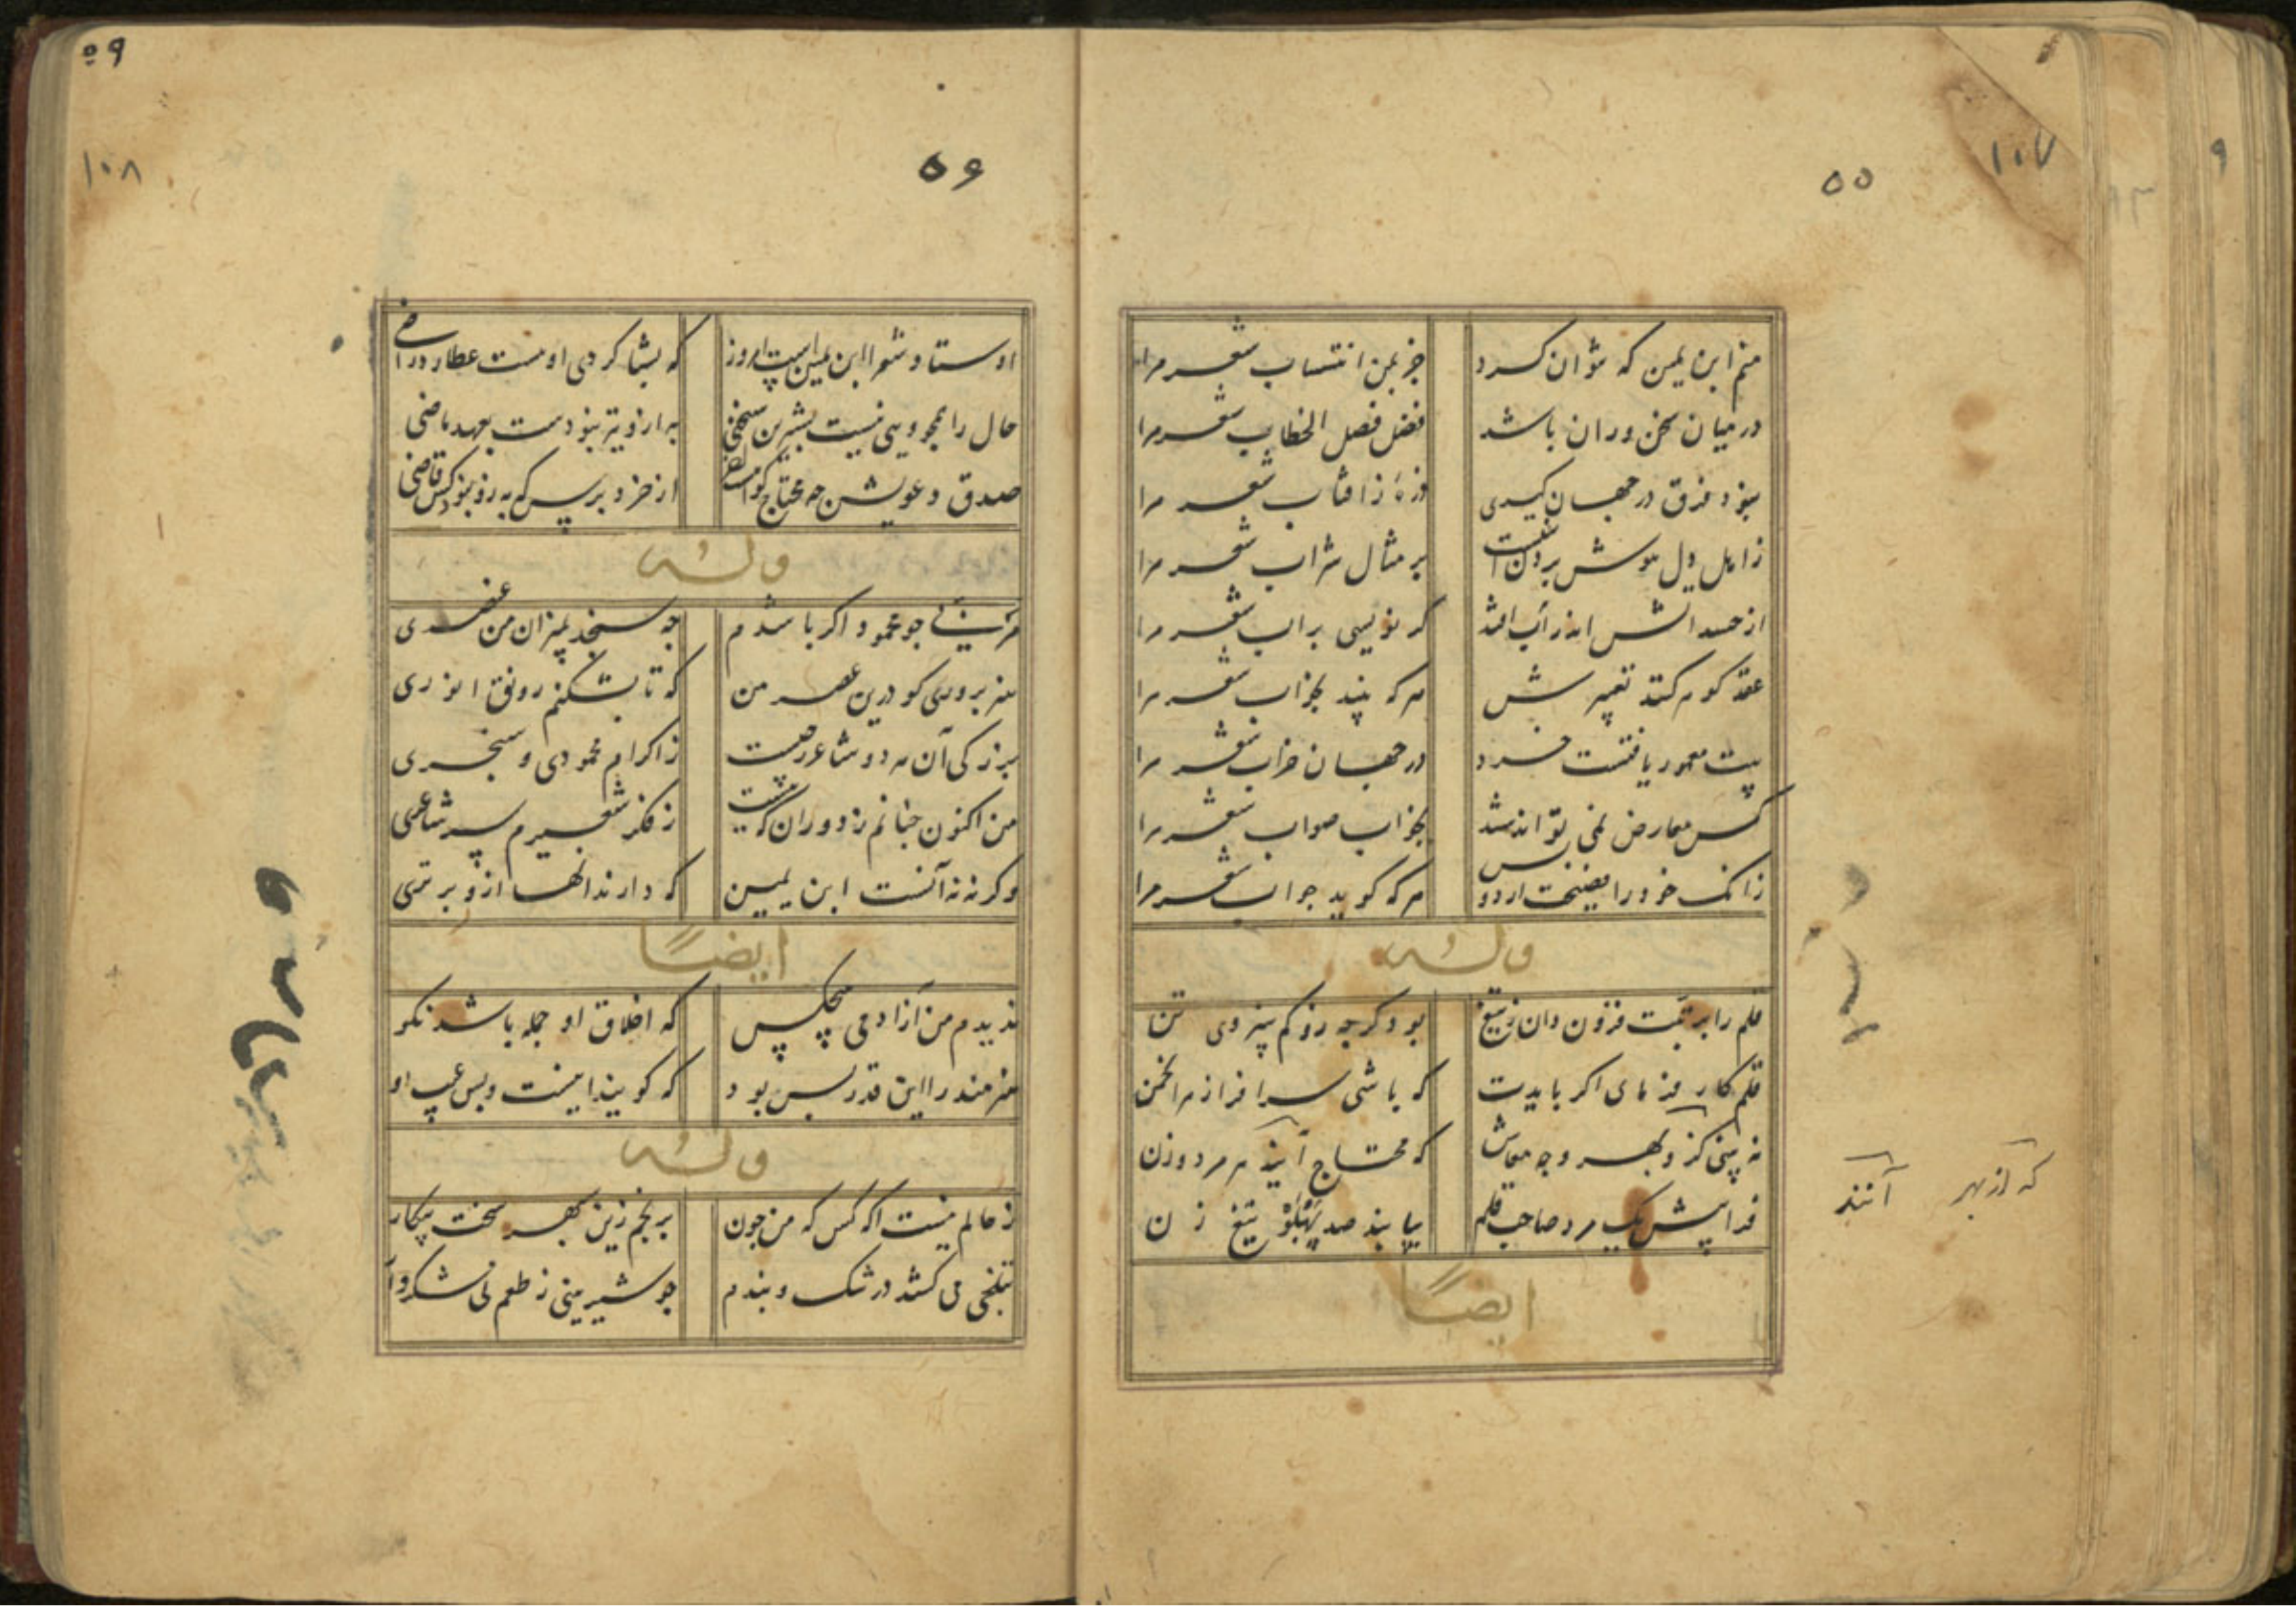 ۱۰۷
۵۵
منم ابن یمین که نتوان کرد جز بمن انتساب شعر مرا
در میان سخن وران باشد فضل فصل الخطاب شعر مرا
نبود فرق در جهان کیری ذرهٔ ز افتاب شعر مرا
ز اهل دل هوش بردن است بر مثال شراب شعر مرا
از حسد اتش اندر آب افتد کر نویسی بر اب شعر مرا
عقد کوهر کند تعبیرش هر که بیند بخواب شعر مرا
بیت معمور یافتست خرد در جهان خراب شعر مرا
کس معارض نمی تواند شد بجواب صواب شعر مرا
زانک خود را بفضیحت اردو بس هر که کوید جواب شعر مرا
وله
قلم را برتبت فزون دان ز تیغ بود کرچه زو کم بنیروی تن
قلم کار فرمای اکر بایدت که باشی سرافراز هر انجمن
نه بینی کزو بهر وجه معاش که محتاج آیند هر مرد و زن
فرا پیش یک مرد صاحب قلم بیایند صد پهلو تیغ زن
که از بهر آنند
ایضاً
۵۹
۱۰۸
۵۶
اوستاد شعرا ابن یمین است امروز که بشاکردی او هست عطارد راضی
حال را همچو ویی نیست بشیرین سخنی به ازو نیز نبودست بعهد ماضی
صدق دعویش چه محتاج کواهست از خرد برس که به زو نبود کس قاضی
وله
مربی چو محمود اکر باشدم چه سنجد بمیزان من عنصری
هنر پروری کو درین عصر من که تا بشکنم رونق انوری
بزرکی آن هر دو شاعر ز چیست ز اکرام محمودی و سنجری
من اکنون چنانم ز دوران که نیست ز فکر شعیرم سر شاعری
وکرنه نه آنست ابن یمین که دارند انها ازو برتری
ایضاً
ندیدم من آزاد می هیچکس که اخلاق او جمله باشد نکو
هنرمند را این قدر بس بود که کویند اینست و بس عیب او
وله
ز حالم نیست اکه کس که من چون برنجم زین سبهر سخت پیکار
بتلخی می کشد در تنک و بندم چو شیرینی ز طعم نی شکر وا